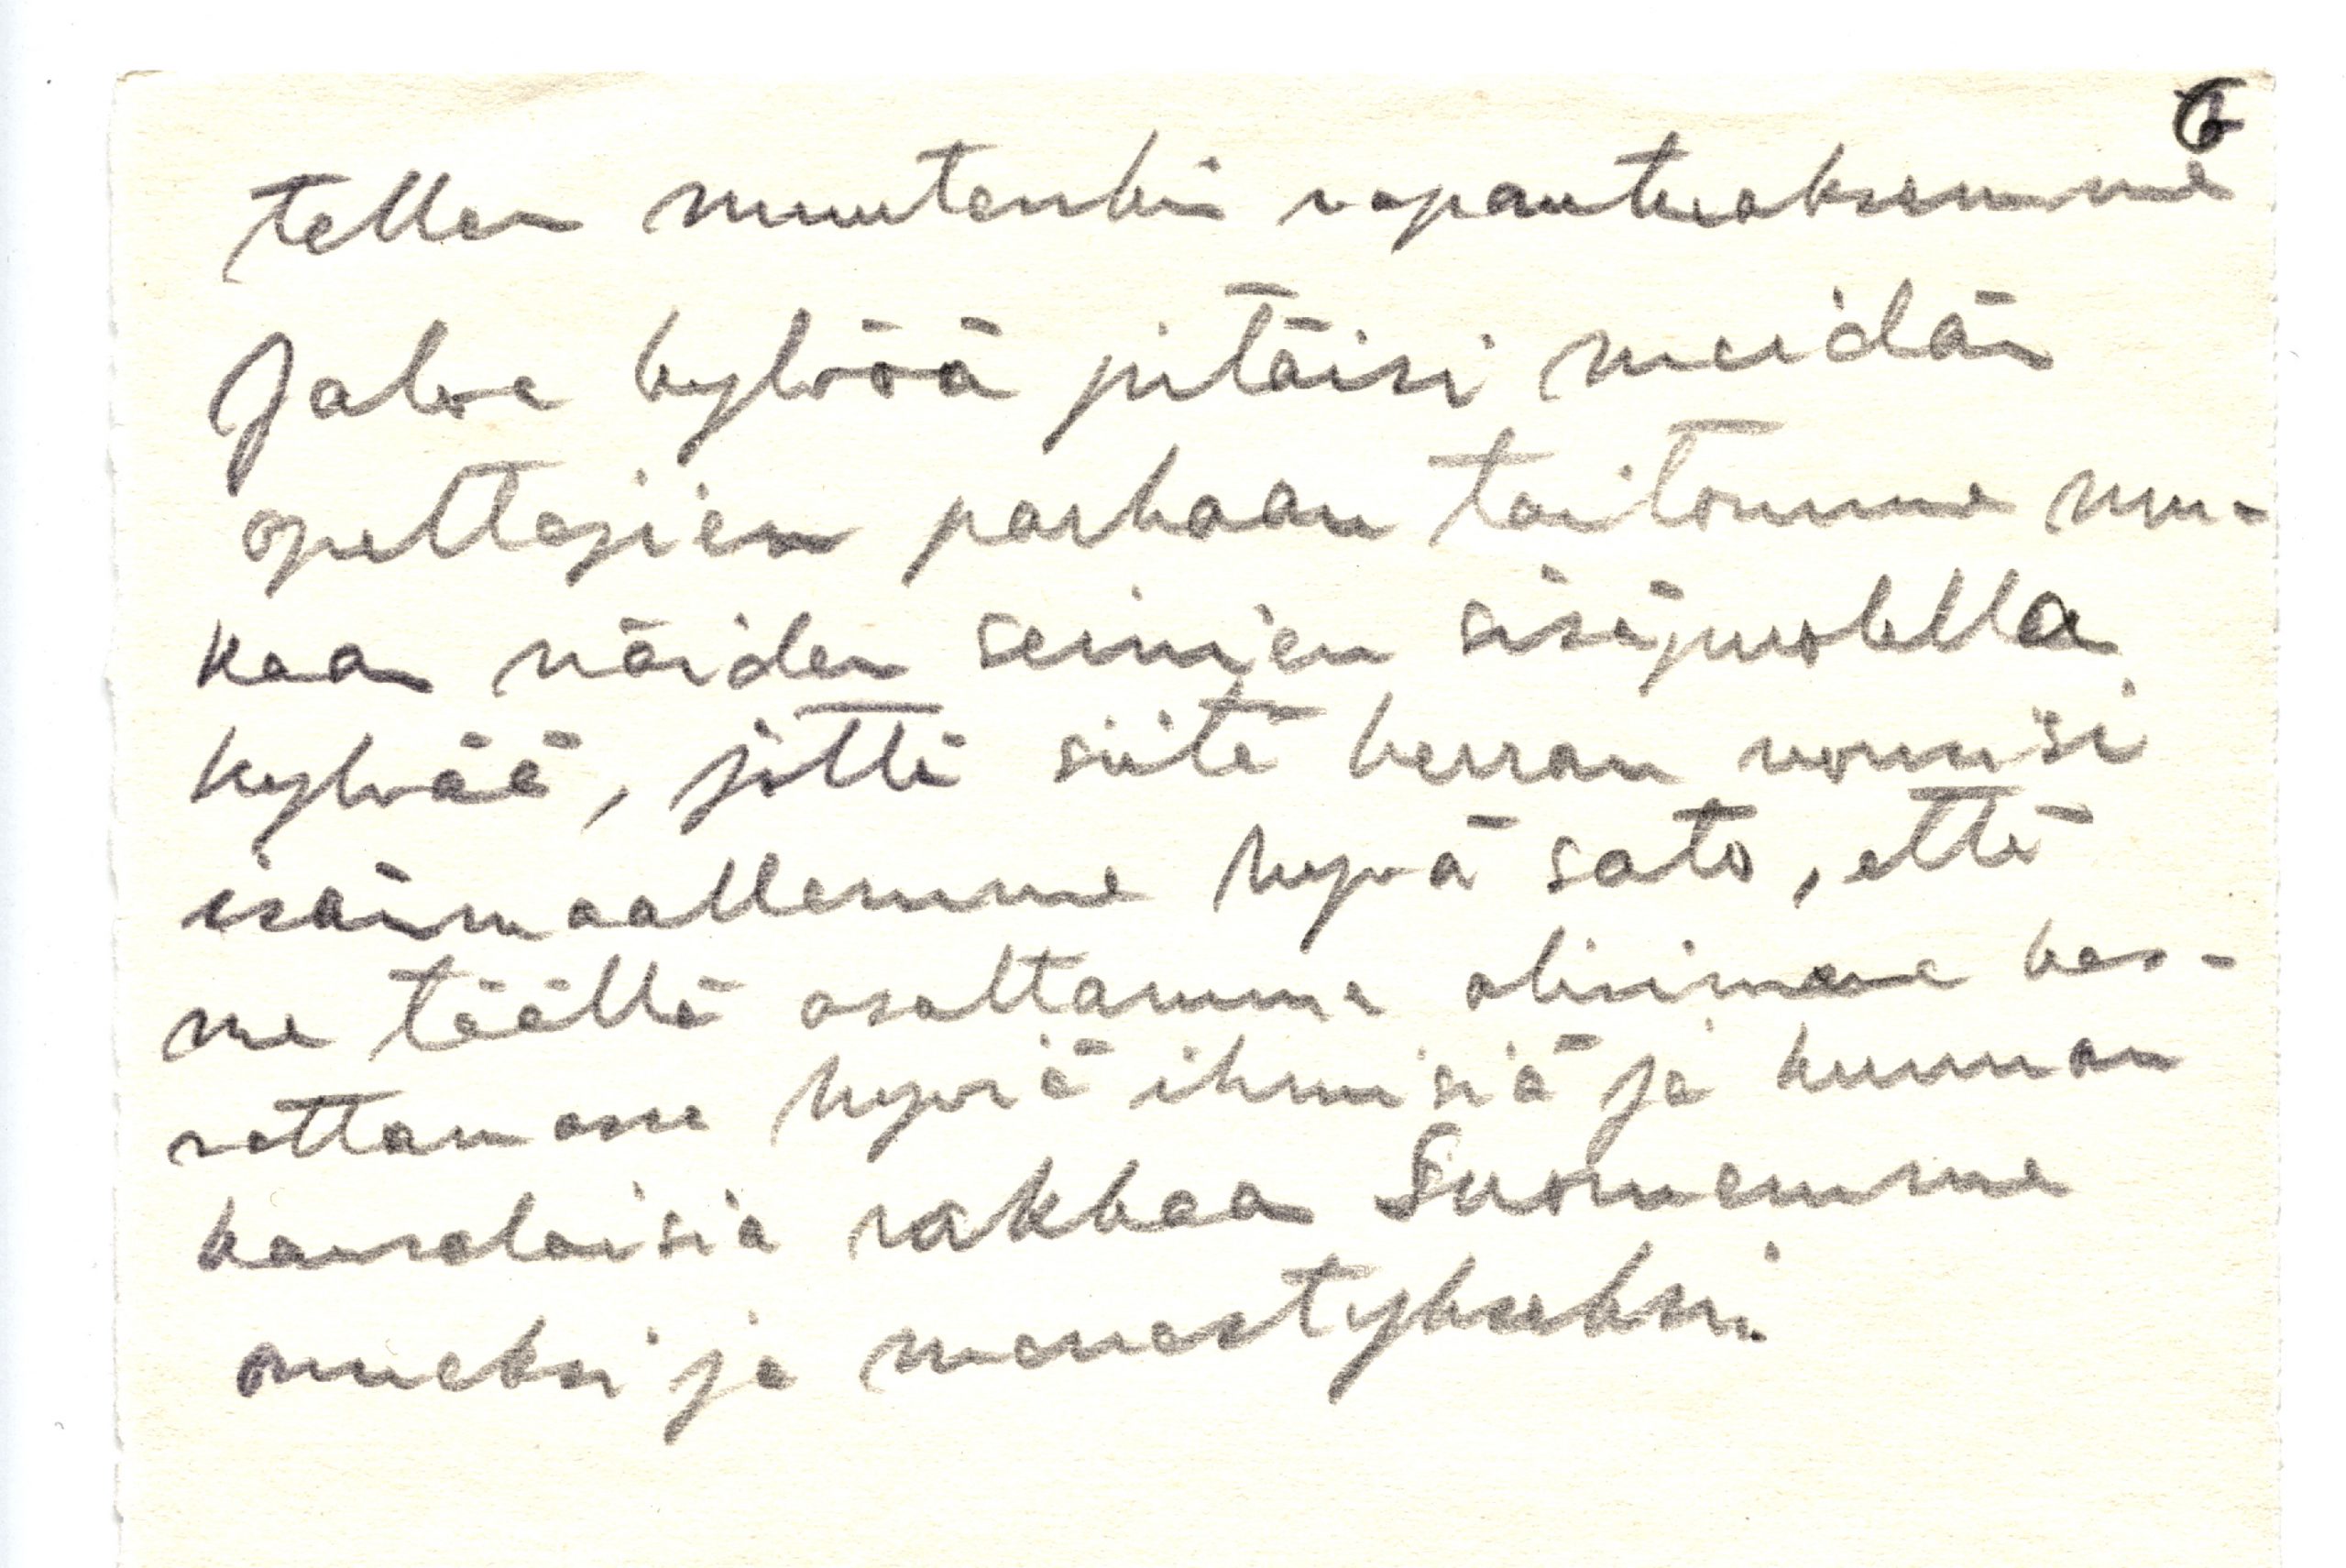 6
tellen muutenkin vapautuaksemme
Jaloa kylvöä pitäisi meidän
opettajien parhaan taitomme mu-
kaan näiden seinien sisäpuolella
kylvää, jotta siitä kerran nousisi
isänmaallemme hyvä sato, että
me täällä osaltamme olisimme kas-
vattamassa hyviä ihmisiä ja kunnon
kansalaisia rakkaan Suomemme
onneksi ja menestykseksi.